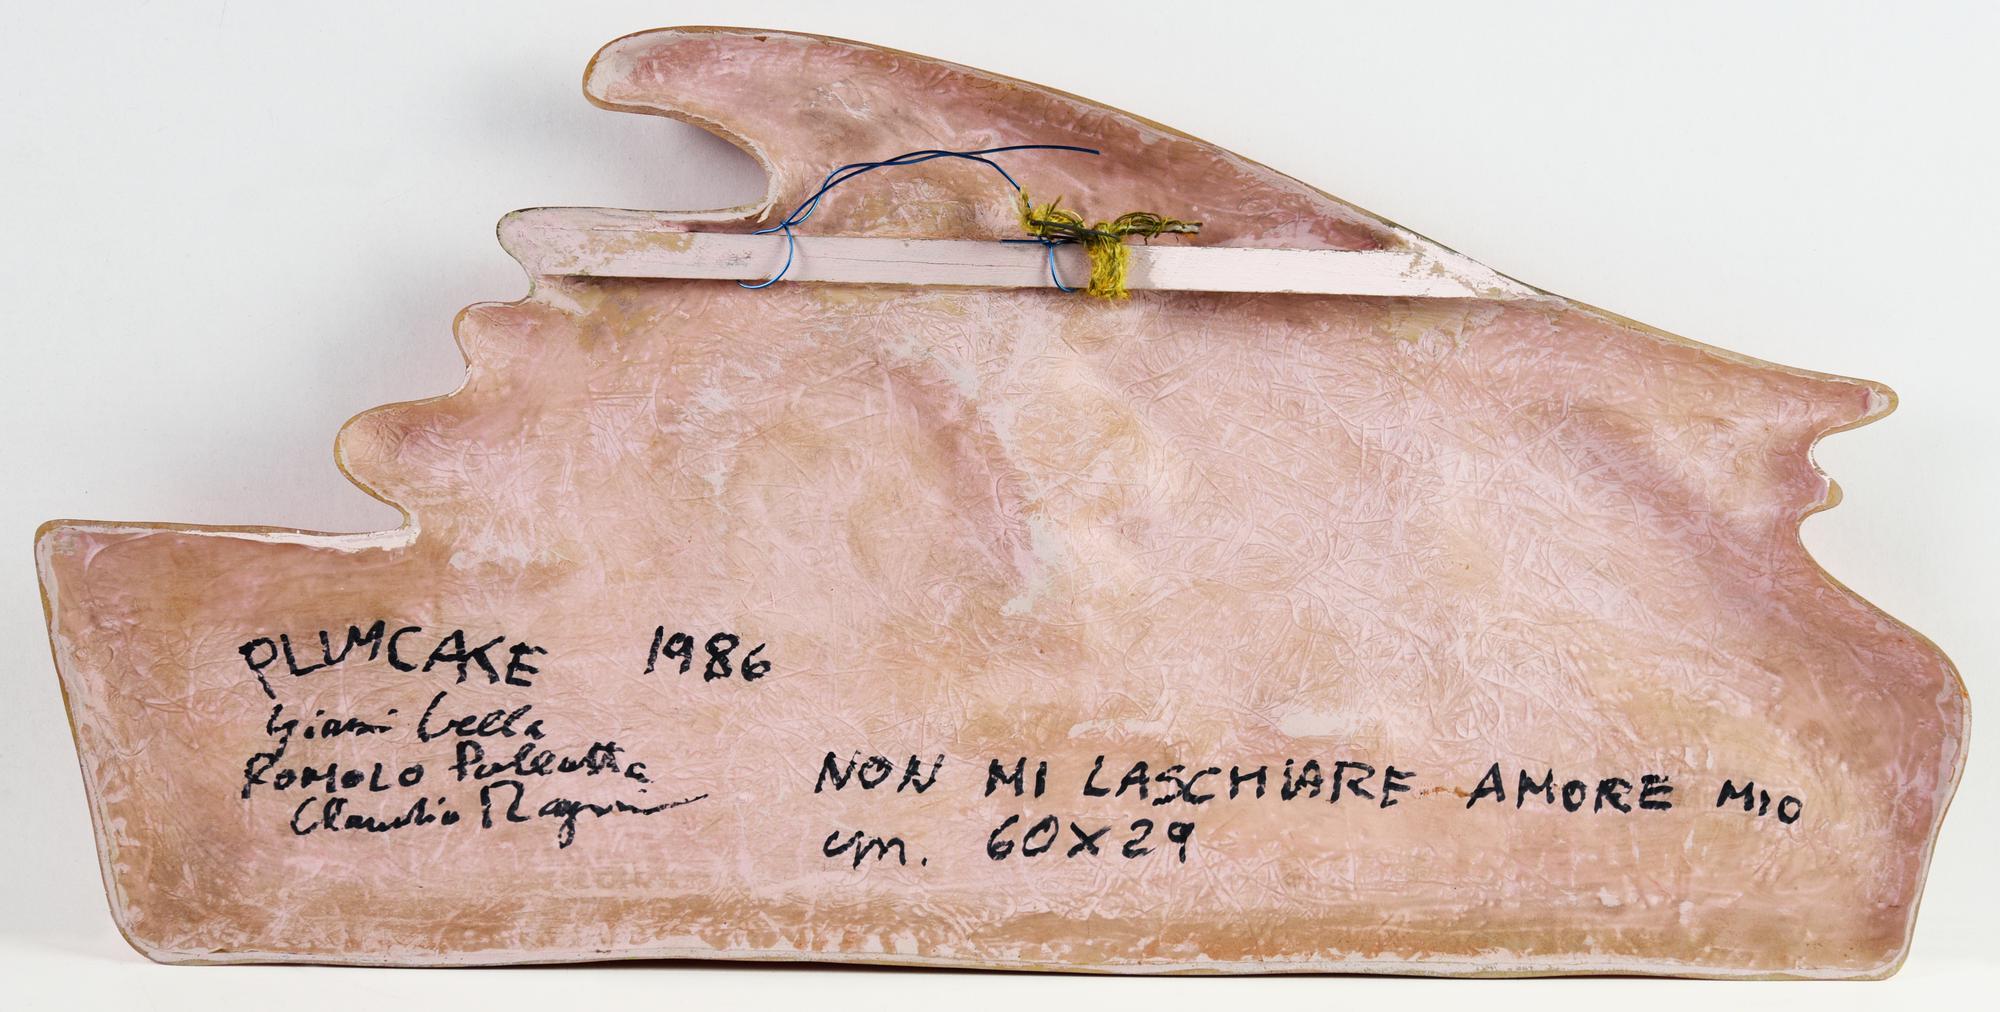 PLUMCAKE 1986
Gianni Cella
ROMOLO Pallotta
Claudio Ragni
NON MI LASCHIARE AMORE MIO
cm. 60X29